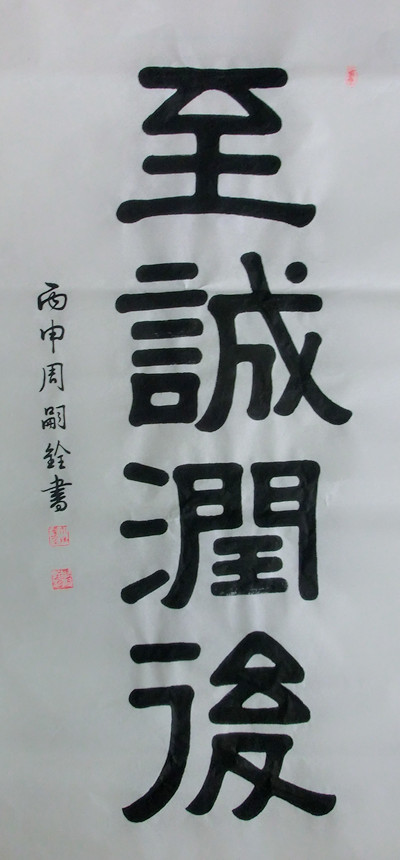 至誠潤後
丙申周嗣銓書